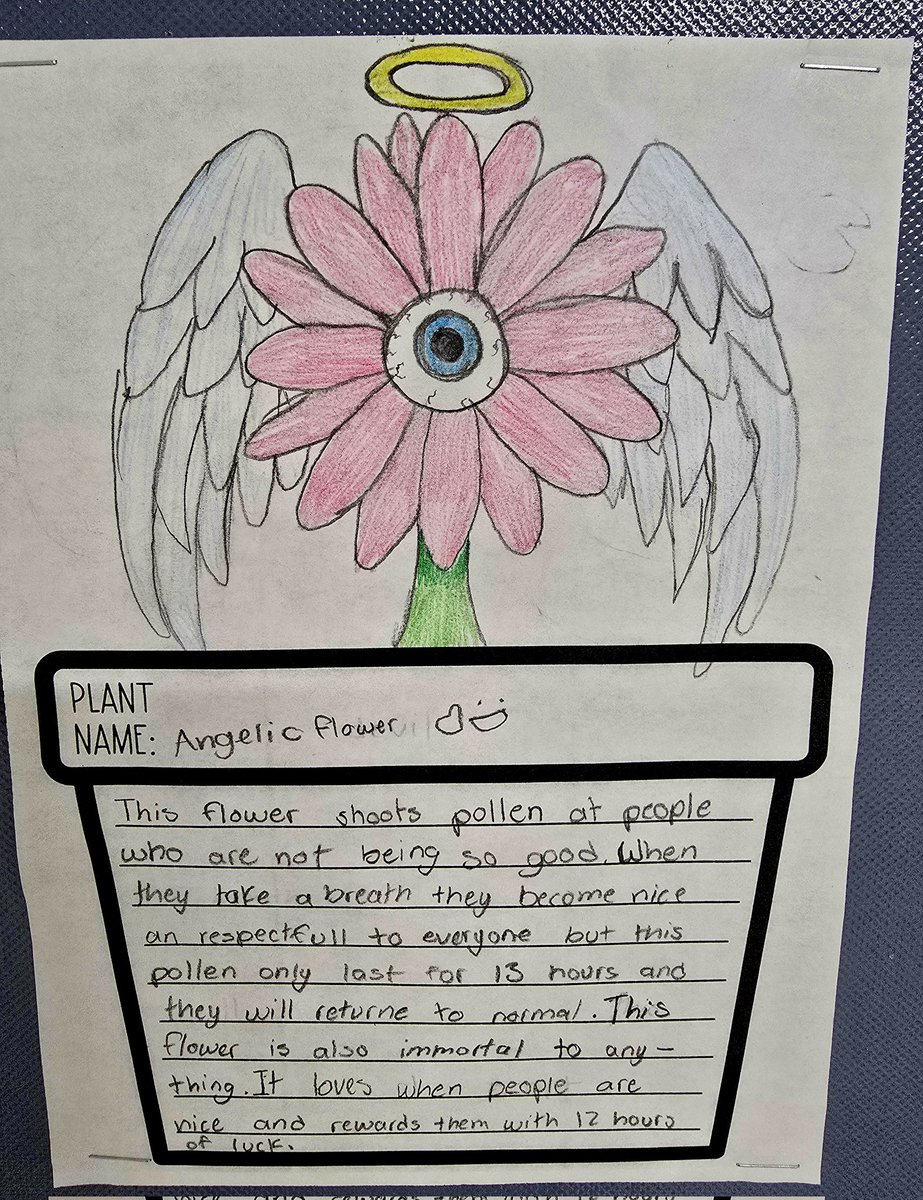 PLANT
NAME: Angelic flower
This flower shoots pollen at people
who are not being so good. When
they take a breath they become nice
an respectfull to everyone but this
pollen only last for 13 hours and
they will returne to normal. This
flower is also immortal to any-
thing. It loves when people are
nice and rewards them with 12 hours
of luck.